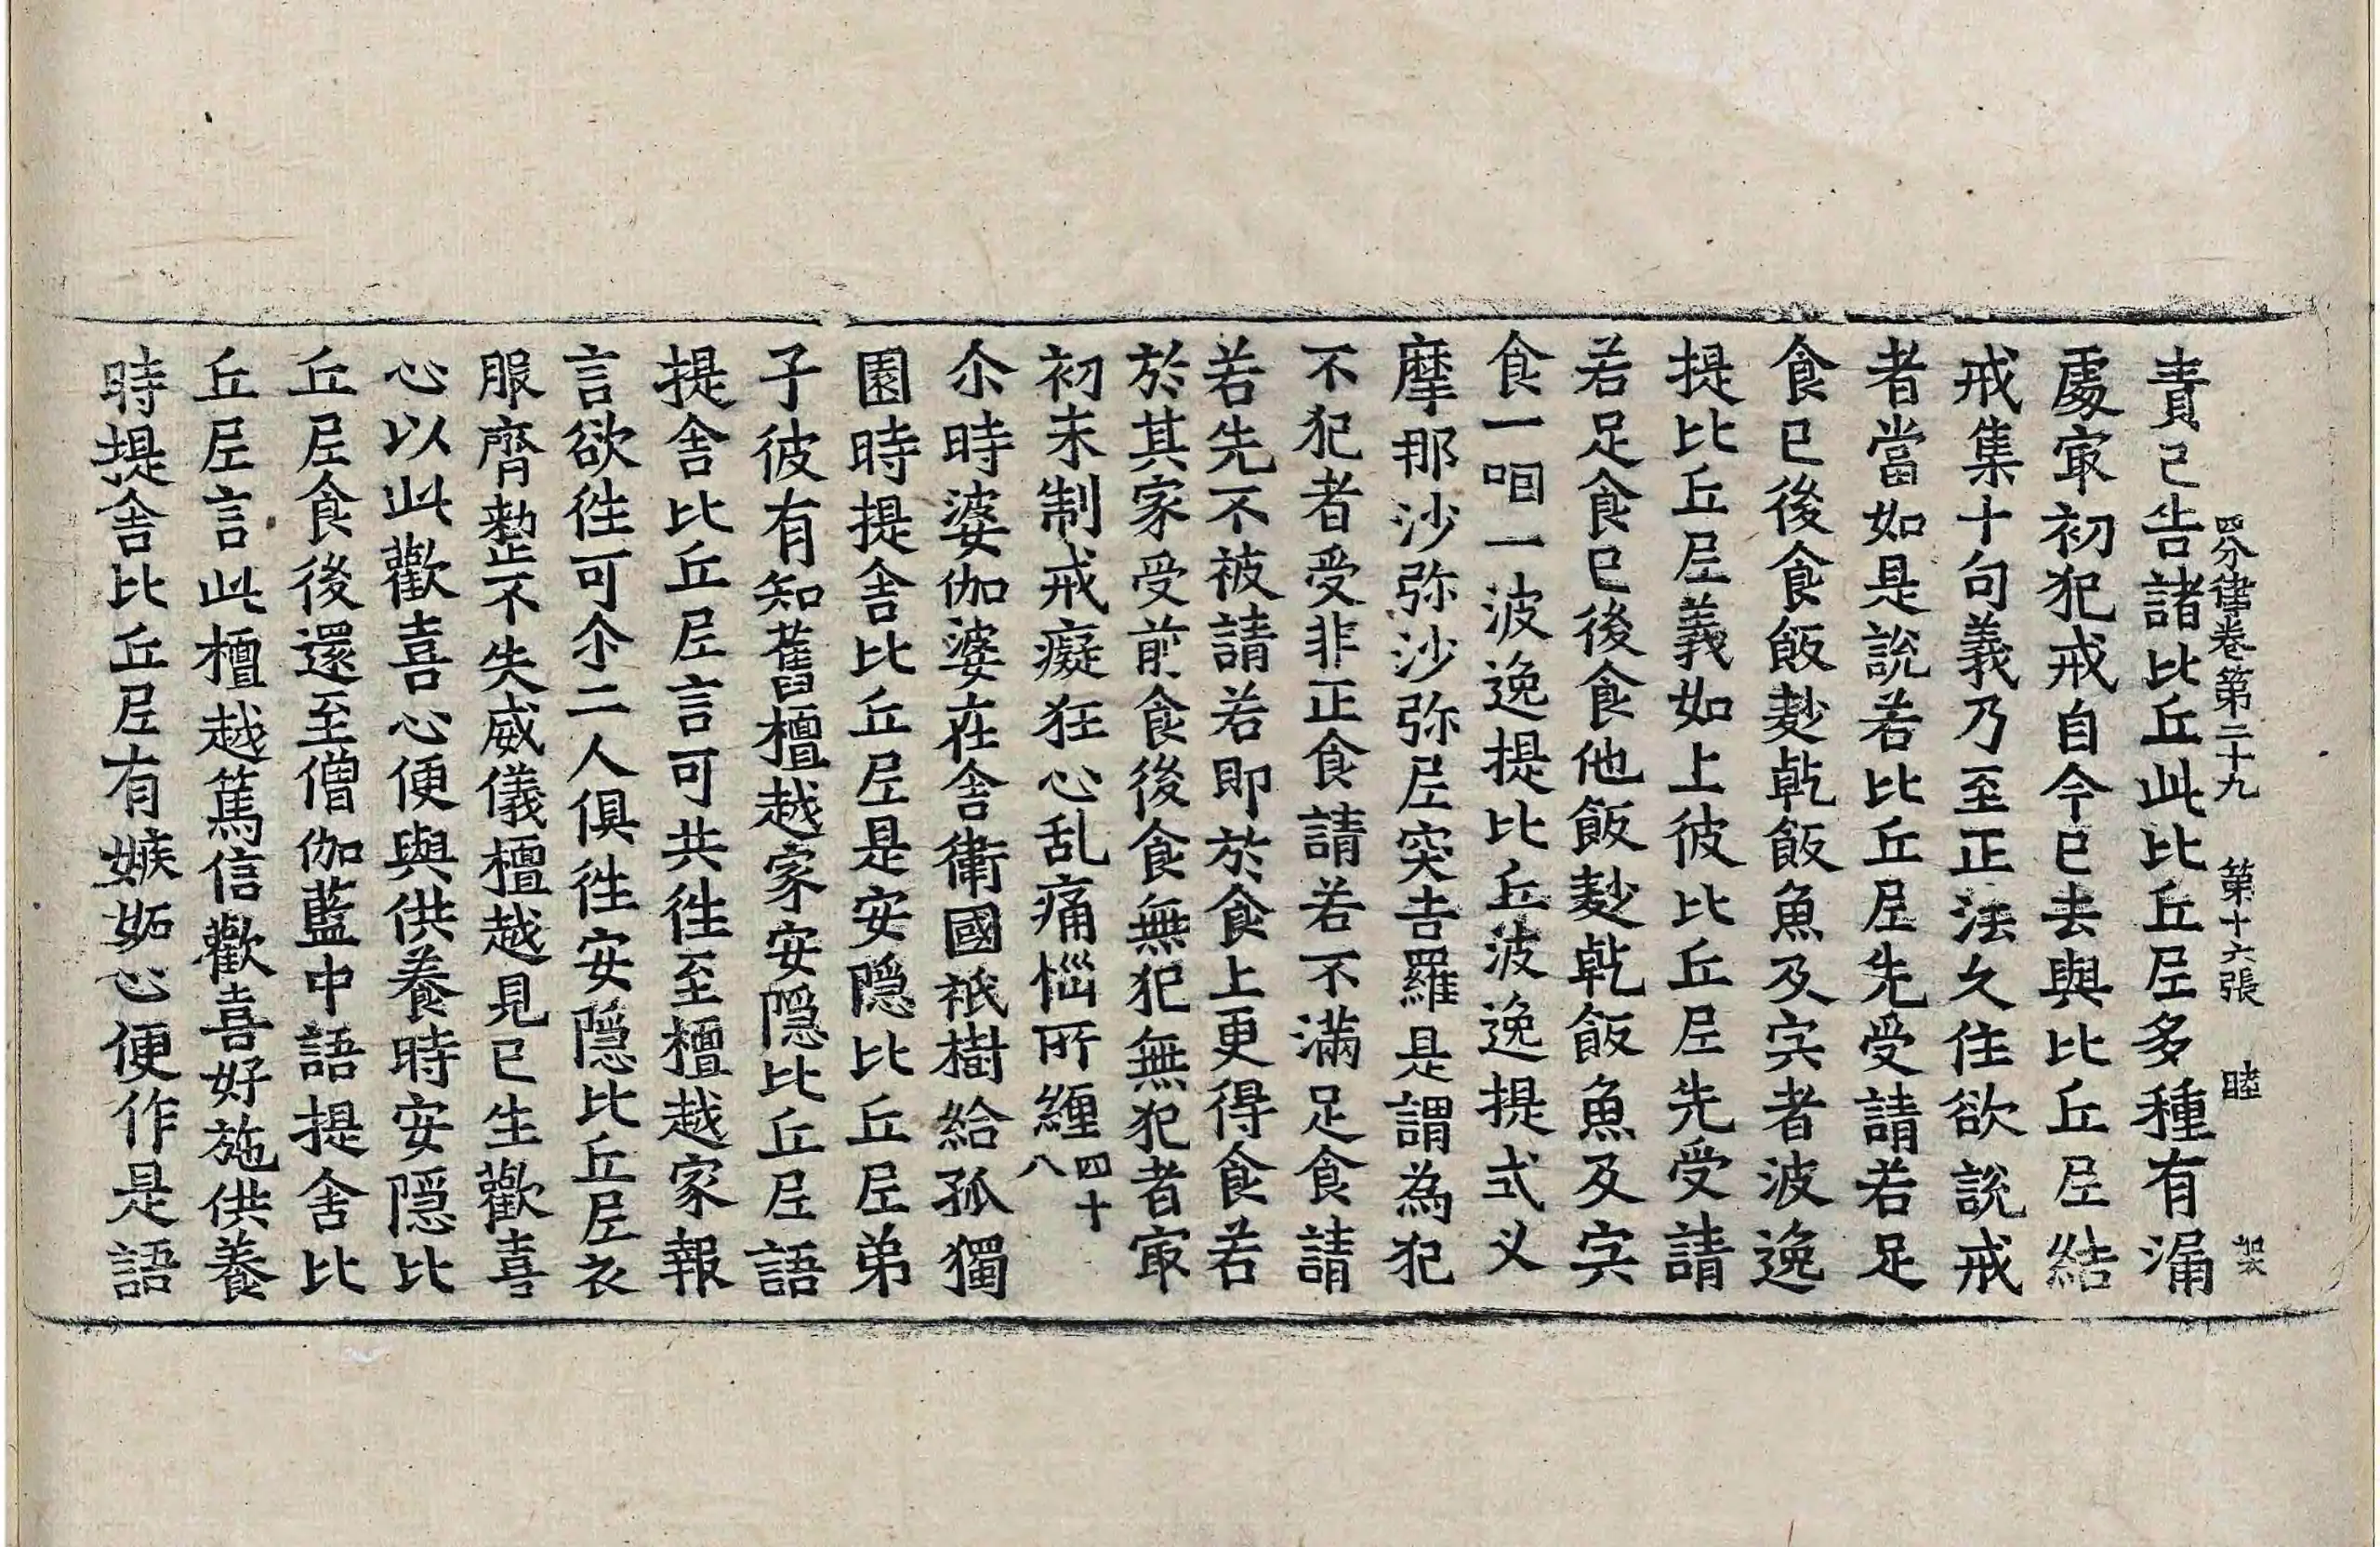 四分律卷第二十九 第十六張 睦
責已告諸比丘此比丘尼多種有漏
處㝡初犯戒自今已去與比丘尼結
戒集十句義乃至正法久住欲說戒
者當如是說若比丘尼先受請若足
食已後食飯麨乹飯魚及宍者波逸
提比丘尼義如上彼比丘尼先受請
若足食已後食他飯麨乹飯魚及宍
食一咽一波逸提比丘波逸提式叉
摩那沙弥沙弥尼突吉羅是謂為犯
不犯者受非正食請若不滿足食請
若先不被請若即於食上更得食若
於其家受前食後食無犯無犯者㝡
初未制戒癡狂心乱痛惱所纏四十八
尒時婆伽婆在舍衛國祇樹給孤獨
園時提舍比丘尼是安隠比丘尼弟
子彼有知舊檀越家安隠比丘尼語
提舍比丘尼言可共徃至檀越家報
言欲徃可尒二人俱徃安隠比丘尼衣
服齊整不失威儀檀越見已生歡喜
心以此歡喜心便與供養時安隠比
丘尼食後還至僧伽藍中語提舍比
丘尼言此檀越篤信歡喜好施供養
時提舍比丘尼有嫉妬心便作是語